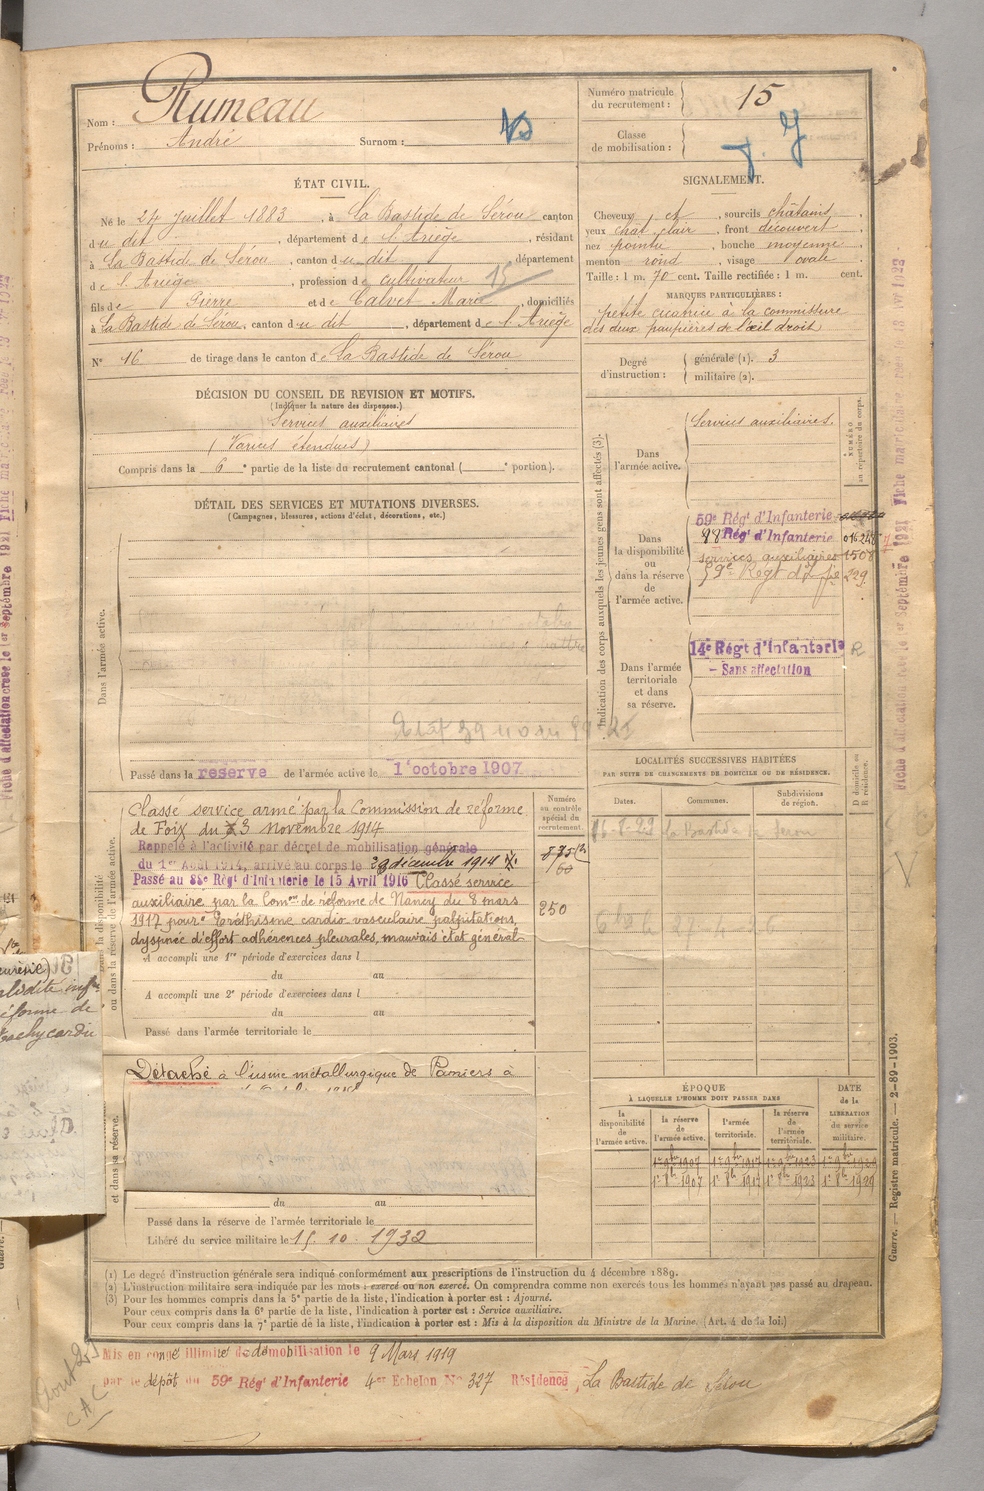 Nom : Rumeau
Prénoms : André Surnom :
Numéro matricule du recrutement : 15
Classe de mobilisation :
ÉTAT CIVIL.
Né le 24 Juillet 1883, à La Bastide de Sérou canton
du dit, département de l'Ariège, résidant
à La Bastide de Sérou, canton du dit, département
de l'Ariège, profession de cultivateur 15
fils de Pierre et de Calvet Marie, domiciliés
à La Bastide de Sérou, canton du dit, département de l'Ariège
N° 16 de tirage dans le canton de La Bastide de Sérou
SIGNALEMENT.
Cheveux et, sourcils châtains,
yeux chat clair, front découvert,
nez pointu, bouche moyenne
menton rond, visage ovale
Taille : 1 m. 70 cent. Taille rectifiée : 1 m. cent.
MARQUES PARTICULIÈRES :
petite cicatrice à la commissure
des deux paupières de l'œil droit
Degré d'instruction : générale (1). 3
militaire (2).
DÉCISION DU CONSEIL DE REVISION ET MOTIFS.
(Indiquer la nature des dispenses.)
Services auxiliaires
(Varices étendues)
Compris dans la 6e partie de la liste du recrutement cantonal ( e portion).
DÉTAIL DES SERVICES ET MUTATIONS DIVERSES.
(Campagnes, blessures, actions d'éclat, décorations, etc.)
Dans l'armée active.
Passé dans la réserve de l'armée active le 1er octobre 1907
Indication des corps auxquels les jeunes gens sont affectés (3).
NUMÉRO au répertoire du corps.
Dans l'armée active.
Services auxiliaires.
Dans la disponibilité ou dans la réserve de l'armée active.
59e Régt d'Infanterie
88 Régt d'Infanterie 016248
services auxiliaires 1508
59e Régt d'Ife 229
Dans l'armée territoriale et dans sa réserve.
14e Régt d'Infanterie R
- Sans affectation
LOCALITÉS SUCCESSIVES HABITÉES
PAR SUITE DE CHANGEMENTS DE DOMICILE OU DE RÉSIDENCE.
Dates. Communes. Subdivisions de région. D domicile ou R résidence.
la Bastide de Serou
27-4-26
Dans la disponibilité ou dans la réserve de l'armée active.
Numéro au contrôle spécial du recrutement.
Classé service armé par la Commission de réforme
de Foix du 3 novembre 1914
Rappelé à l'activité par décret de mobilisation générale
du 1er Août 1914, arrivé au corps le 29 décembre 1914
Passé au 88e Régt d'Infanterie le 15 Avril 1916 Classé service
auxiliaire par la Comon de réforme de Nancy du 8 mars
1917 pour : Eréthisme cardio vasculaire palpitations,
dyspnée d'effort adhérences pleurales, mauvais état général
250
A accompli une 1re période d'exercices dans l
du au
A accompli une 2e période d'exercices dans l
du au
Passé dans l'armée territoriale le
Détaché à l'usine métallurgique de Pamiers à
et dans sa réserve.
du au
Passé dans la réserve de l'armée territoriale le
Libéré du service militaire le 15. 10. 1932
ÉPOQUE
À LAQUELLE L'HOMME DOIT PASSER DANS
la disponibilité de l'armée active. la réserve de l'armée active. l'armée territoriale. la réserve de l'armée territoriale.
DATE de la LIBÉRATION du service militaire.
1er 9bre 1907 1er 9bre 1917 1er 9bre 1923 1er 9bre 1929
1er 8bre 1907 1er 8bre 1917 1er 8bre 1923 1er 8bre 1929
(1) Le degré d'instruction générale sera indiqué conformément aux prescriptions de l'instruction du 4 décembre 1889.
(2) L'instruction militaire sera indiquée par les mots : exercé ou non exercé. On comprendra comme non exercés tous les hommes n'ayant pas passé au drapeau.
(3) Pour les hommes compris dans la 5e partie de la liste, l'indication à porter est : Ajourné.
Pour ceux compris dans la 6e partie de la liste, l'indication à porter est : Service auxiliaire.
Pour ceux compris dans la 7e partie de la liste, l'indication à porter est : Mis à la disposition du Ministre de la Marine. (Art. 4 de la loi.)
Mis en congé illimité de démobilisation le 9 Mars 1919
par le dépôt du 59e Régt d'Infanterie 4er Echelon N° 327 Résidence La Bastide de Sérou
Guerre. — Registre matricule. — 2-89-1903.
Août 29
CAC
réforme de
tachycardie